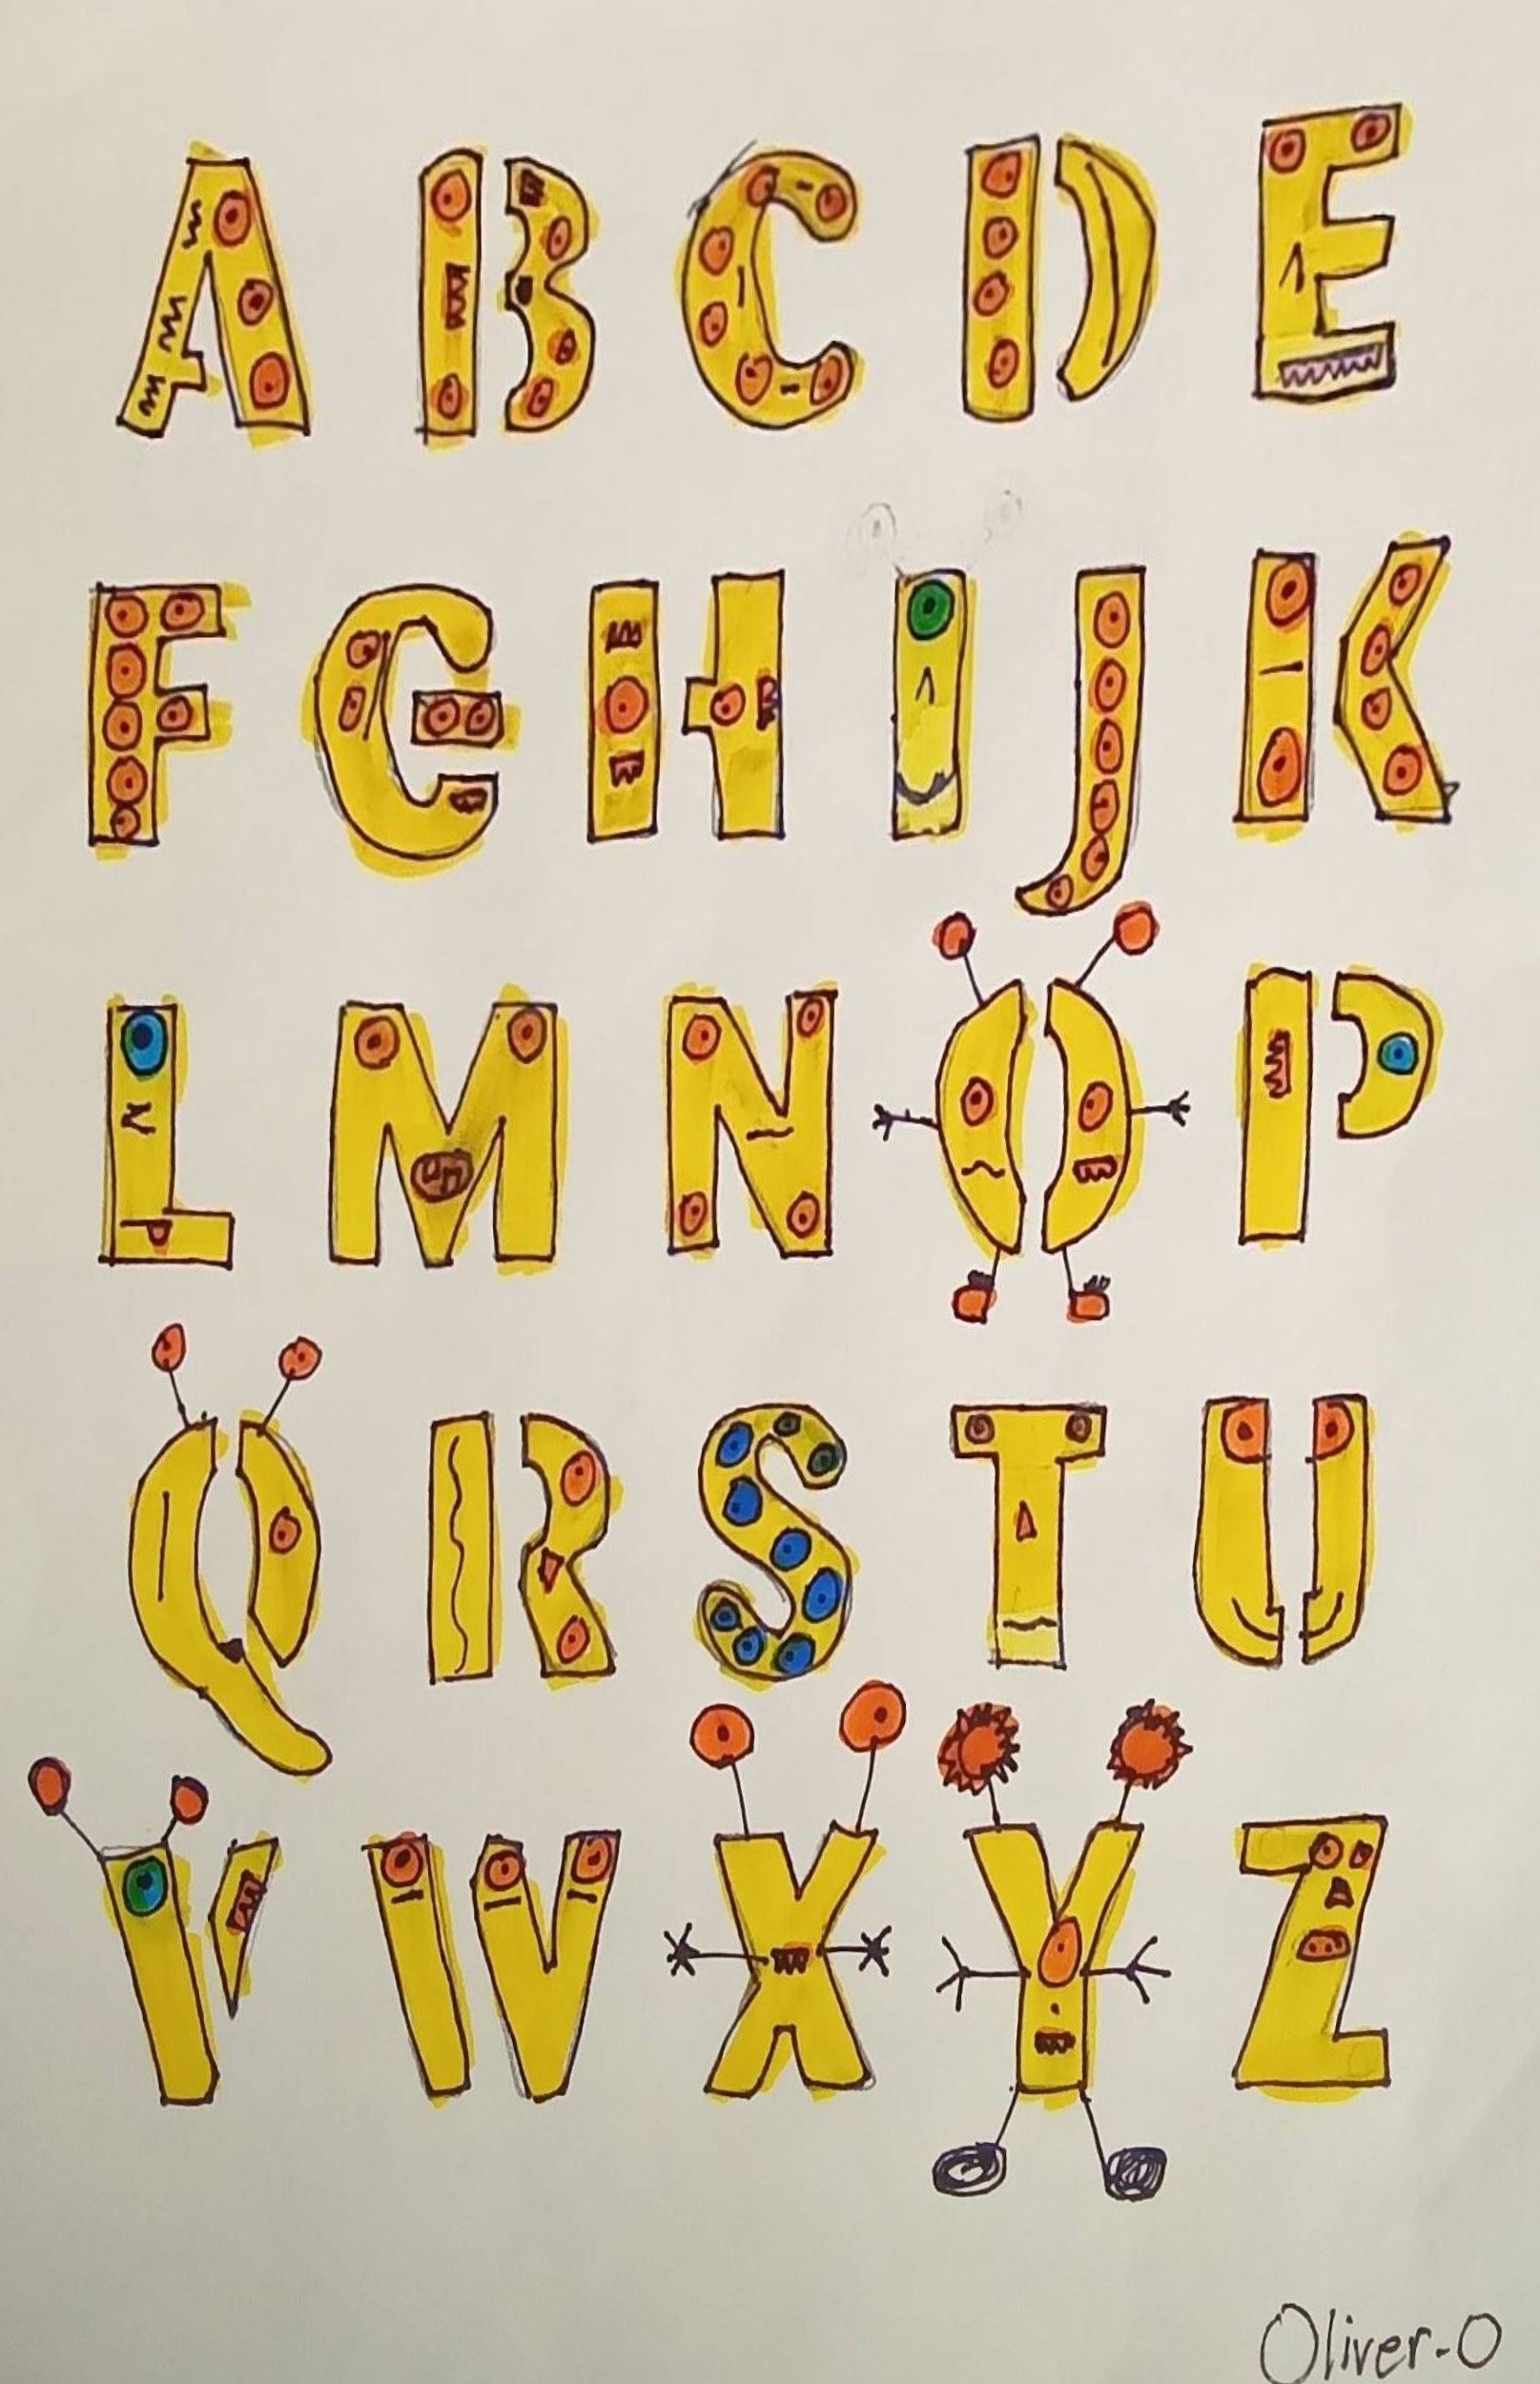 A B C D E
F G H I J K
L M N O P
Q R S T U
V W X Y Z
Oliver-O